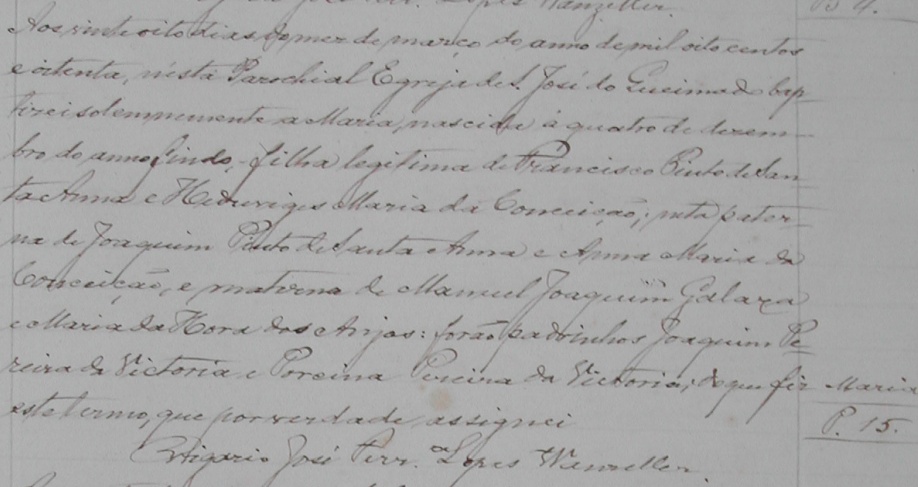 Lopes Wanzeller.
P. 4.
Aos vinte oito dias do mez de março do anno de mil oito centos
e oitenta, nesta Parochial Egreja de S. José do Queimado bap-
tizei solemnemente a Maria, nascida à quatro de dezem-
bro do anno findo, filha legitima de Francisco Pinto de San-
ta Anna e Hedwiges Maria da Conceição; neta pater-
na de Joaquim Pinto de Santa Anna e Anna Maria da
Conceição, e materna de Manuel Joaquim Galaxa
e Maria da Hora dos Anjos: forão padrinhos Joaquim Pe-
reira da Victoria e Porcina Pereira da Victoria; do que fiz
Maria
este termo, que por verdade assignei
P. 15.
Vigario José Ferr.ª Lopes Wanzeller